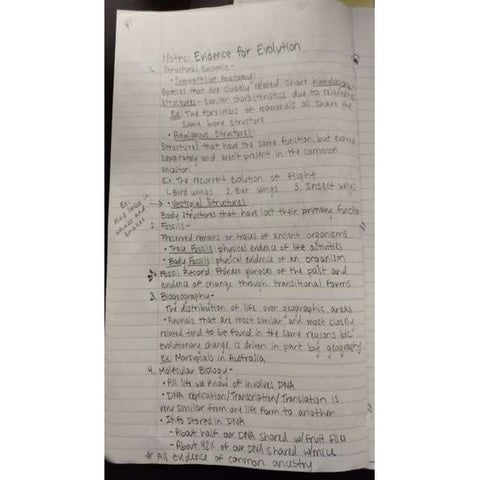 Notes: Evidence for Evolution
1. Structural Evidence -
• Comparative Anatomy
Species that are closely related share homologous
structures - similar characteristics due to relatedness
Ex: The forelimbs of mammals all share the
same bone structure
• Analogous Structures
Structures that have the same function, but evolved
separately and aren't present in the common
ancestor.
Ex: The recurrent evolution of flight
1. Bird wings 2. Bat wings 3. Insect wings
• Vestigial Structures
Ex: Hind limbs in whales and snakes
Body structures that have lost their primary function
2. Fossils -
Preserved remains or traces of ancient organisms
• Trace Fossils: physical evidence of life activities
• Body Fossils: physical evidence of an organism
Fossil Record Provides glimpses of the past and
evidence of change through transitional forms
3. Biogeography -
The distribution of life over geographic areas
• Animals that are most similar and most closely
related tend to be found in the same regions b/c
evolutionary change is driven in part by geography
Ex: Marsupials in Australia
4. Molecular Biology -
• All life we know of involves DNA
• DNA replication/Transcription/Translation is
very similar from one life form to another
• Info Stored in DNA
- About half our DNA shared w/fruit flies
- About 92% of our DNA shared w/mice
* All evidence of common ancestry